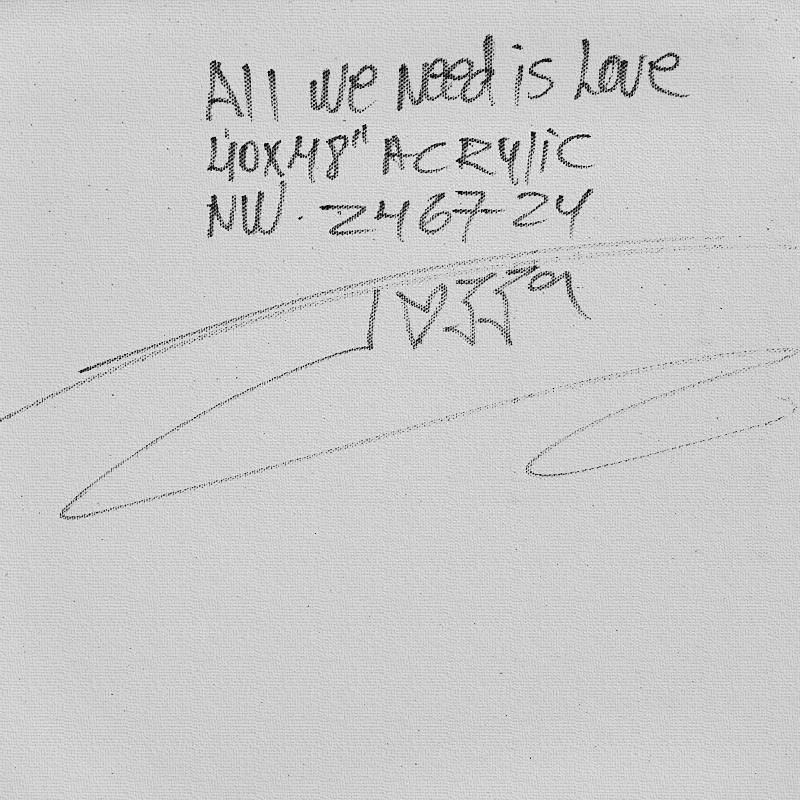 All we Need is Love
40x48" ACRYliC
NW. 2467-24